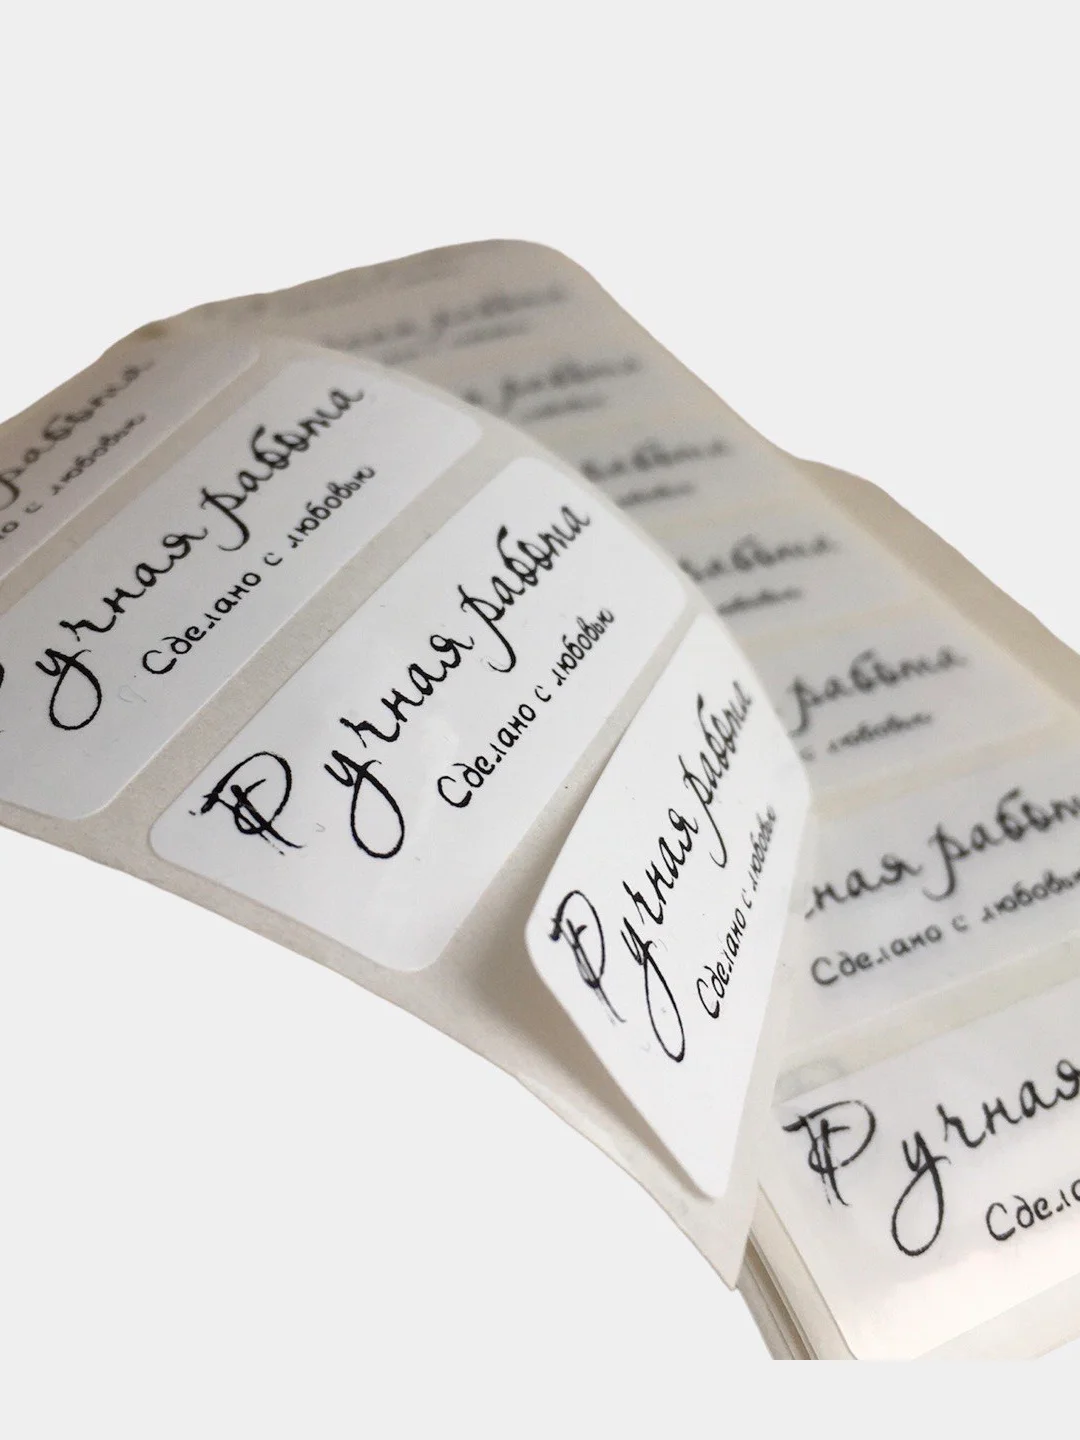 работа
с любовью
Ручная работа
Сделано с любовью
Ручная работа
Сделано с любовью
Ручная работа
Сделано с любовью
работа
работа
работа
работа
работа
с любовью
ная работа
Сделано с любовью
Ручная
Сдела